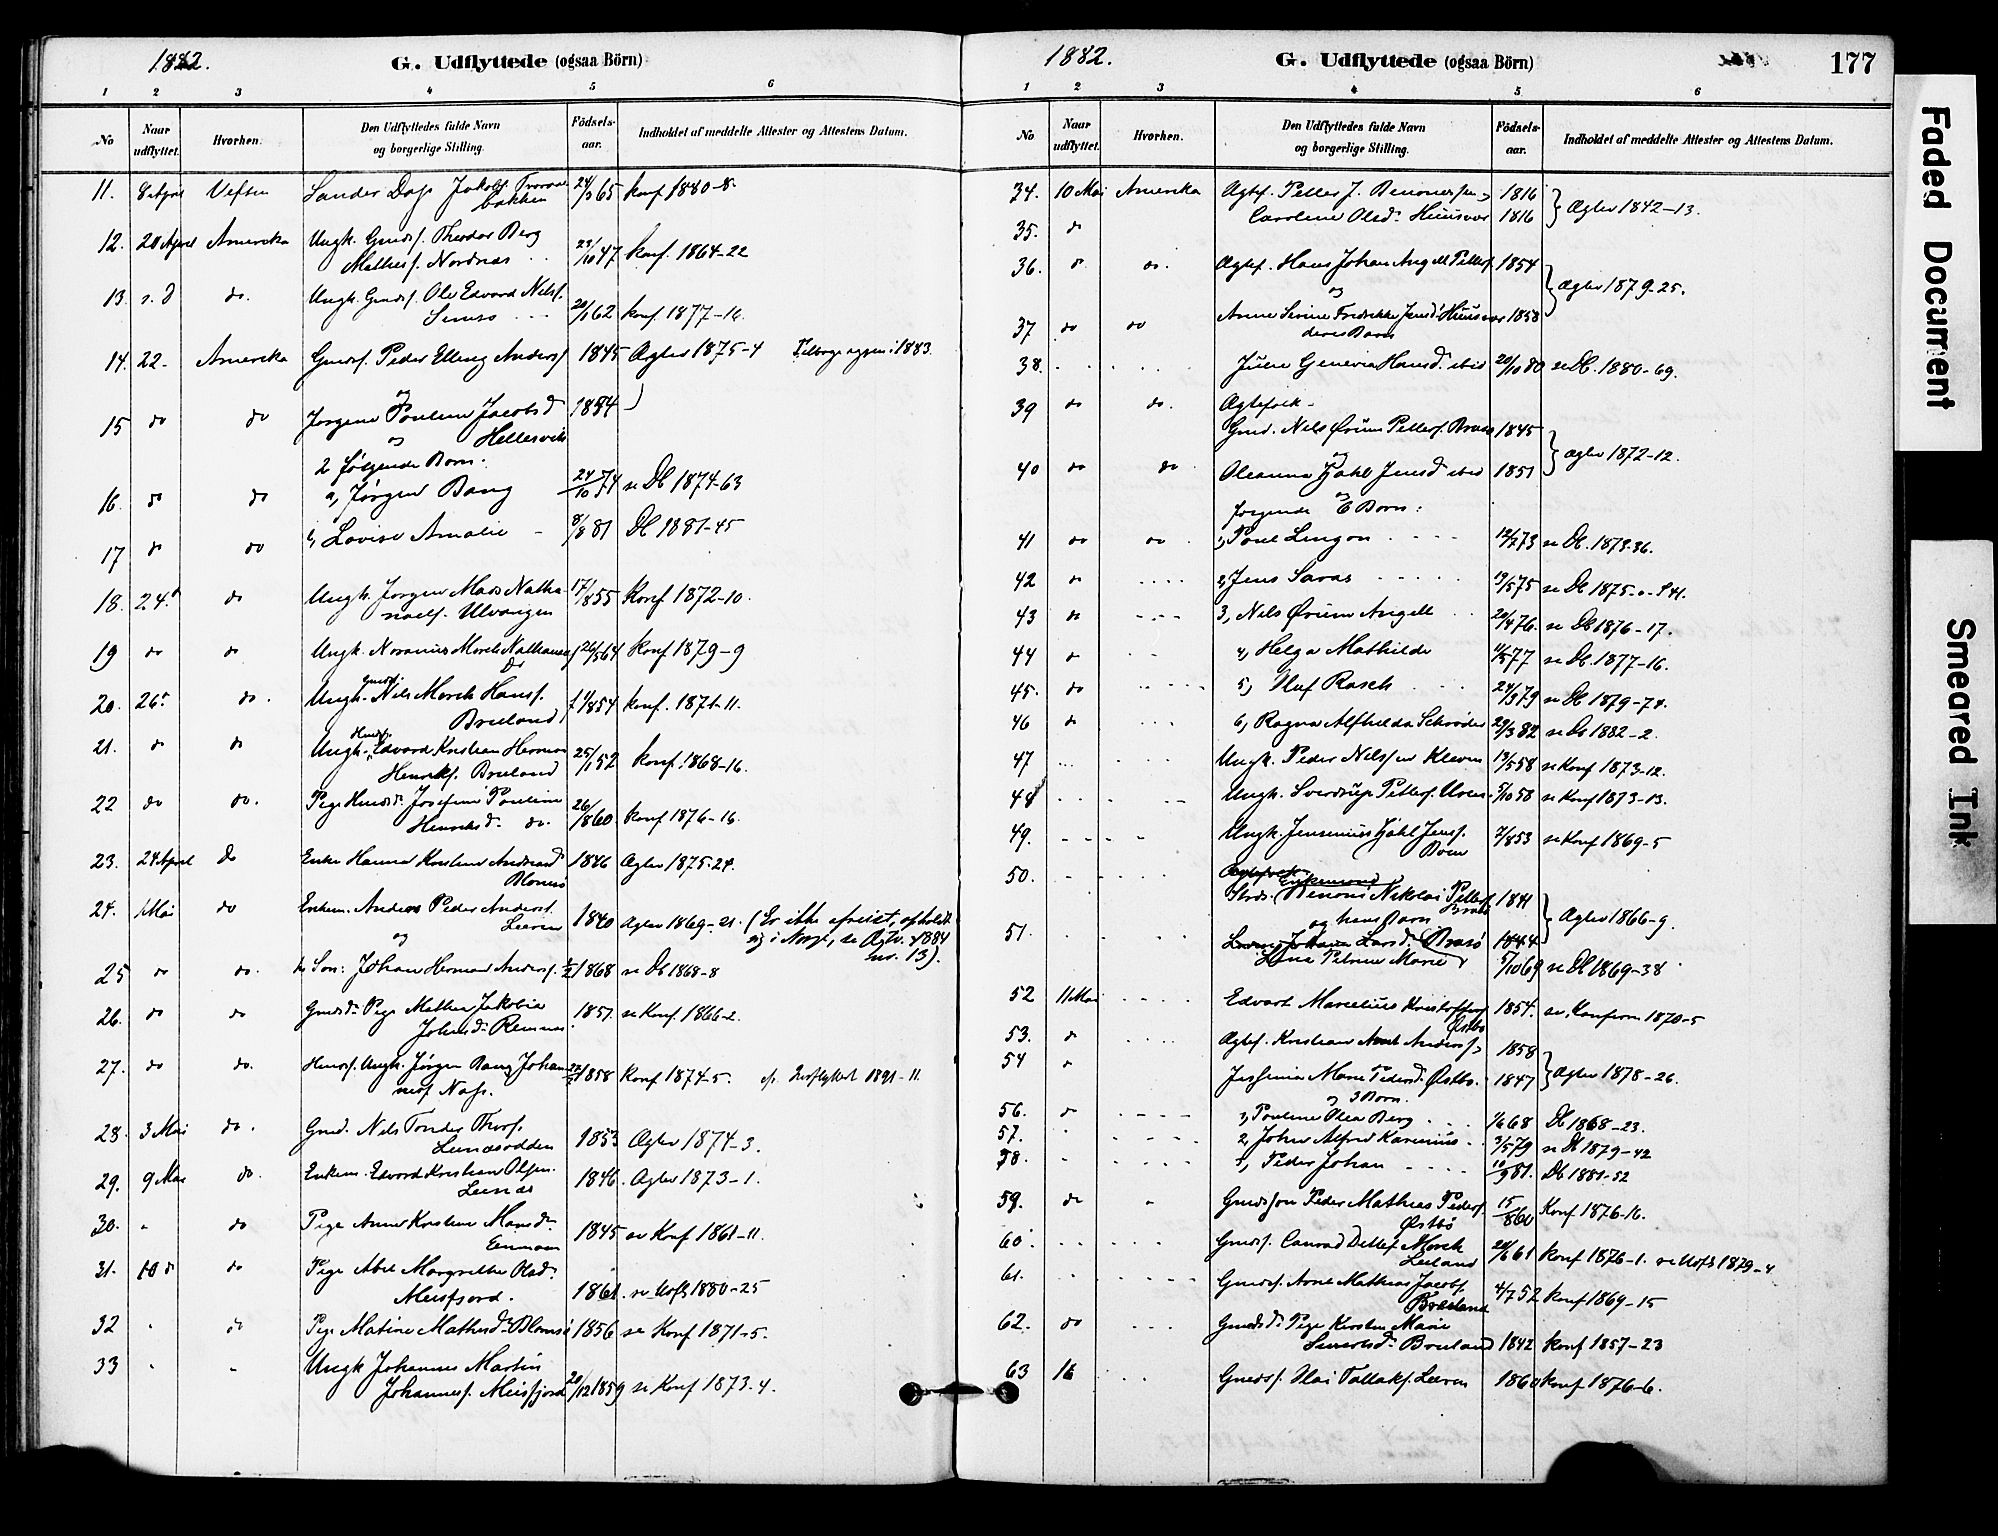 1882.
G. Udflyttede (ogsaa Börn)
1 2 3 4 5 6
No
Naar udflyttet.
Hvorhen.
Den Udflyttedes fulde Navn og borgerlige Stilling.
Födsels-aar.
Indholdet af meddelte Attester og Attestens Datum.
11. 8 April Vefsen Sander Dap Jakobs.
bakken 24/3 65 konf 1880-8.
12. 20 April Amerika Ungk. Gmds. Theodor Berg
Mathiess. Nordnæs 23/10 47 konf. 1864-22
13. do. Ungk. Gmds. Ole Edvard Nilss.
20/1 62 konf. 1877-16.
14. 22. Amerika Gmds. Peder Elling Anderss. 1845 Ægtev 1875-4 Tilbage igjen i 1883.
og
15 do do Jørgine Pauline Jacobsd 1854
og Hellesvik
2 følgende Børn:
16 do do a, Jørgen Bang 24/10 74 se Db 1874-63
17 do do b, Lovise Amalie - 8/8 81 Db 1881-45
18. 24. do Ungk. Jørgen Maas Natha-
naels. Ulvangen 17/8 55 Konf 1872-10.
19 do do Ungk. Noranius Morch Nathanaels 26/5 64 Konf 1879-9
do
20. 26 do. Ungk. Gmds. Nils Morch Hanss.
Breeland 54 konf. 1871-11.
21. do do Ungk. Hmds. Edvard Kristian Herman
Henriks. Breeland 25/1 52 konf. 1868-16.
22 do do. Pige Hmdsd. Josefine Pauline
Henriksd. do. 26/8 60 konf 1876-16.
23. 24 April do Enke Hanna Kristine Andreasd
Blomsø 1846 Ægtev 1875-24.
24. 1 Mai do Enkem. Anders Peder Anderss.
Leeren 1840 Ægtev 1869-21. (Er ikke afreist, opholdt
sig i Norge, se Ægtv. 1884
no. 13).
og
25 do do. Søn: Johan Herman Anderss. 1/2 1868 se Db 1868-8
26. do do Gmdsd. Pige Mathea Jakobine
Johnsd. Remnes 1851. se Konf. 1866-2.
27. do do. Hmds. Ungk. Jørgen Bang Johan-
ness Næss. 1858 Konf 1874-5. cfr. Indflyttet 1891-11.
28. 3 Mai do. Gmd. Nils Tonder Thors.
Leenesodden 1853 Ægtev 1874-3.
29. 9 Mai do. Enkem. Edvard Kristian Olsen
Leenæs 1846. Ægtev 1873-1.
30. " do Pige Anne Kirstine Monsd.
1845 se Konf 1861-11.
31. 10 do do Pige Abel Margrethe Olsd.
Meisfjord. 1861. se Udfl 1880-25
32 " do Pige Matine Mathisd. Blomsø 1856 se Konf 1871-5.
33 " " Ungk Johannes Martin
Johanness. Meisfjord 20/12 1859 se Konf 1873-4.
1882.
G. Udflyttede (ogsaa Börn)
177
1 2 3 4 5 6
No
Naar udflyttet.
Hvorhen.
Den Udflyttedes fulde Navn og borgerlige Stilling.
Födsels-aar.
Indholdet af meddelte Attester og Attestens Datum.
34. 10 Mai Amerika Ægtef. Petter J. Benonisen 1816
35. do Caroline Olsd. Huusvær 1816 Ægtev 1842-13.
36. do do. Ægtef. Hans Johan Angell Petters. 1854
og Ægtev 1879-25.
37 do do Anne Serine Fredrikke Jensd. Huusvær 1858
deres Barn
38. Jensine Genevia Hansd. ibid 20/10 80 se Db. 1880-69.
39 do do. Ægtefolk
Gmd. Nils Ørum Petters. Brasø 1845
og Ægtev 1872-12.
40 do do Oleanna Hjahl Jensd ibid 1851
og
følgende 6 Børn:
41 do do 1, Poul Lengon 12/7 73 se Db. 1873-36.
42 do 2, Jens Saras 19/5 75 se Db 1875 41.
43 do 3, Nils Ørum Angell 20/4 76. se Db 1876-17.
44 do 4, Helga Mathilde 77 se Db 1877-16.
45. do 5, Oluf Rasch 24/3 79 se Db 1879-74.
46 do 6, Ragna Alfhilda Schrøder 29/3 82 se Db 1882-2.
47 Ungk. Peder Nilssen Kleven 13/5 58 se Konf 1873-12.
48 Ungk. Sverdrup Petters. 5/10 58 se Konf 1873-13.
49. Ungk. Jensenius Hjahl Jenss.
7/8 53 se Konf 1869-5
50. Ægtefolk Enkemand
Benoni Nikolai Petters. 1841
Brasø
og hans Barn Ægtev 1866-9.
51. Johanna Larsd. Brasø 1844
Lina Petrine Marie 5/10 69 se Db 1869-38
52 11 Mai Edvart Marselius Kristoffers.
Østbø 1854. se Konfirm 1870-5
53. do Ægtef. Kristian Anderss. 1858
54 do Marie Pedersd. Østbø. 1847 Ægtev 1878-26.
og 3 Børn.
56. do 1, Pauline Olea Berg 68 Db 1868-23.
57. " 2, Johan Alfred Karenius 3/5 79 se Db 1879-42
58. " 3, Peder Johan 10/9 81. Db 1881-52
59. do " Gmdsøn Peder Mathias Peders.
Østbø 15/8 60 Konf 1876-16.
60. Gmds. Conrad Detlef Morch
Leeland 61 konf 1876-1. se Udfl 1879-4
61. Gmds. Arnt Mathias Jacobs.
Breeland 4/7 52 konf 1869-15
62. do Gmdsd. Pige Kirsten Marie
Sivertsd. Breeland 1842 konf 1857-23
63 16 Gmds. Olai Tollaks. Leeren 1860 konf 1876-6.
Faded Document
Smeared Ink